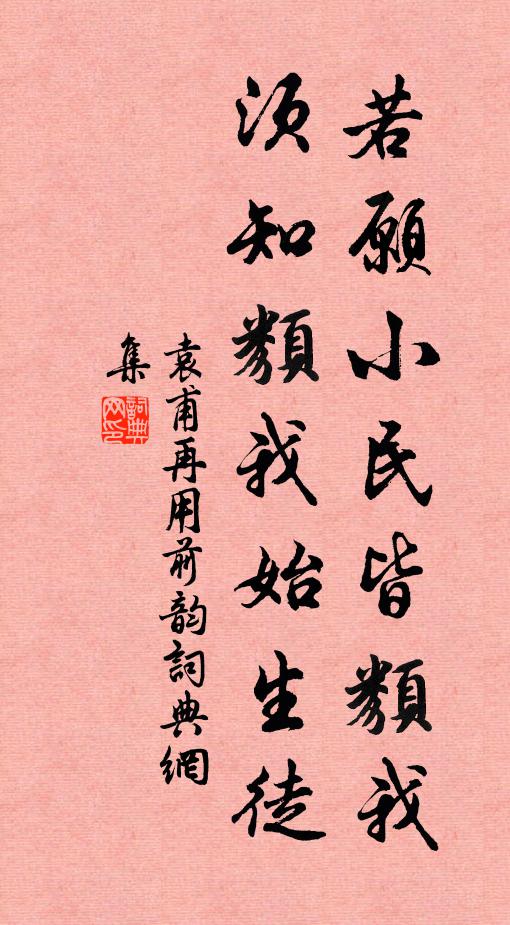 若願小民皆類我
須知類我始生徒
袁甫再用前韵詞典網
集
詞典网印